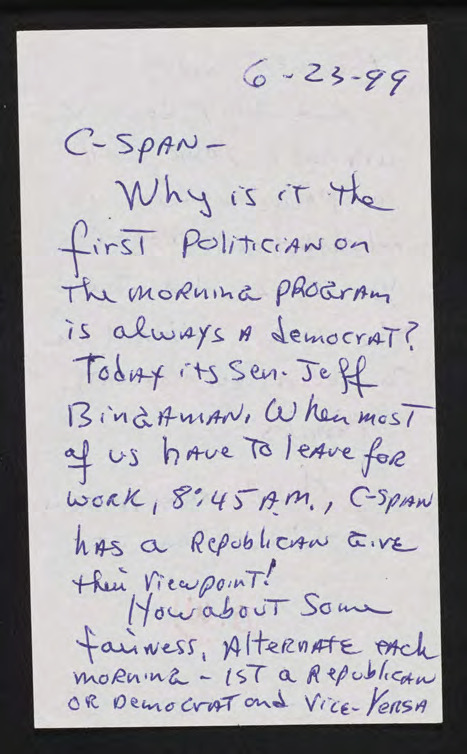 6-23-99
C-SPAN-
Why is it the
first Politician on
the morning program
is always a democrat?
Today its Sen. Jeff
Bingaman. When most
of us have to leave for
work, 8:45 A.M., C-SPAN
has a Republican give
their viewpoint!
How about some
fairness, Alternate each
morning - 1st a Republican
or Democrat and Vice-Versa